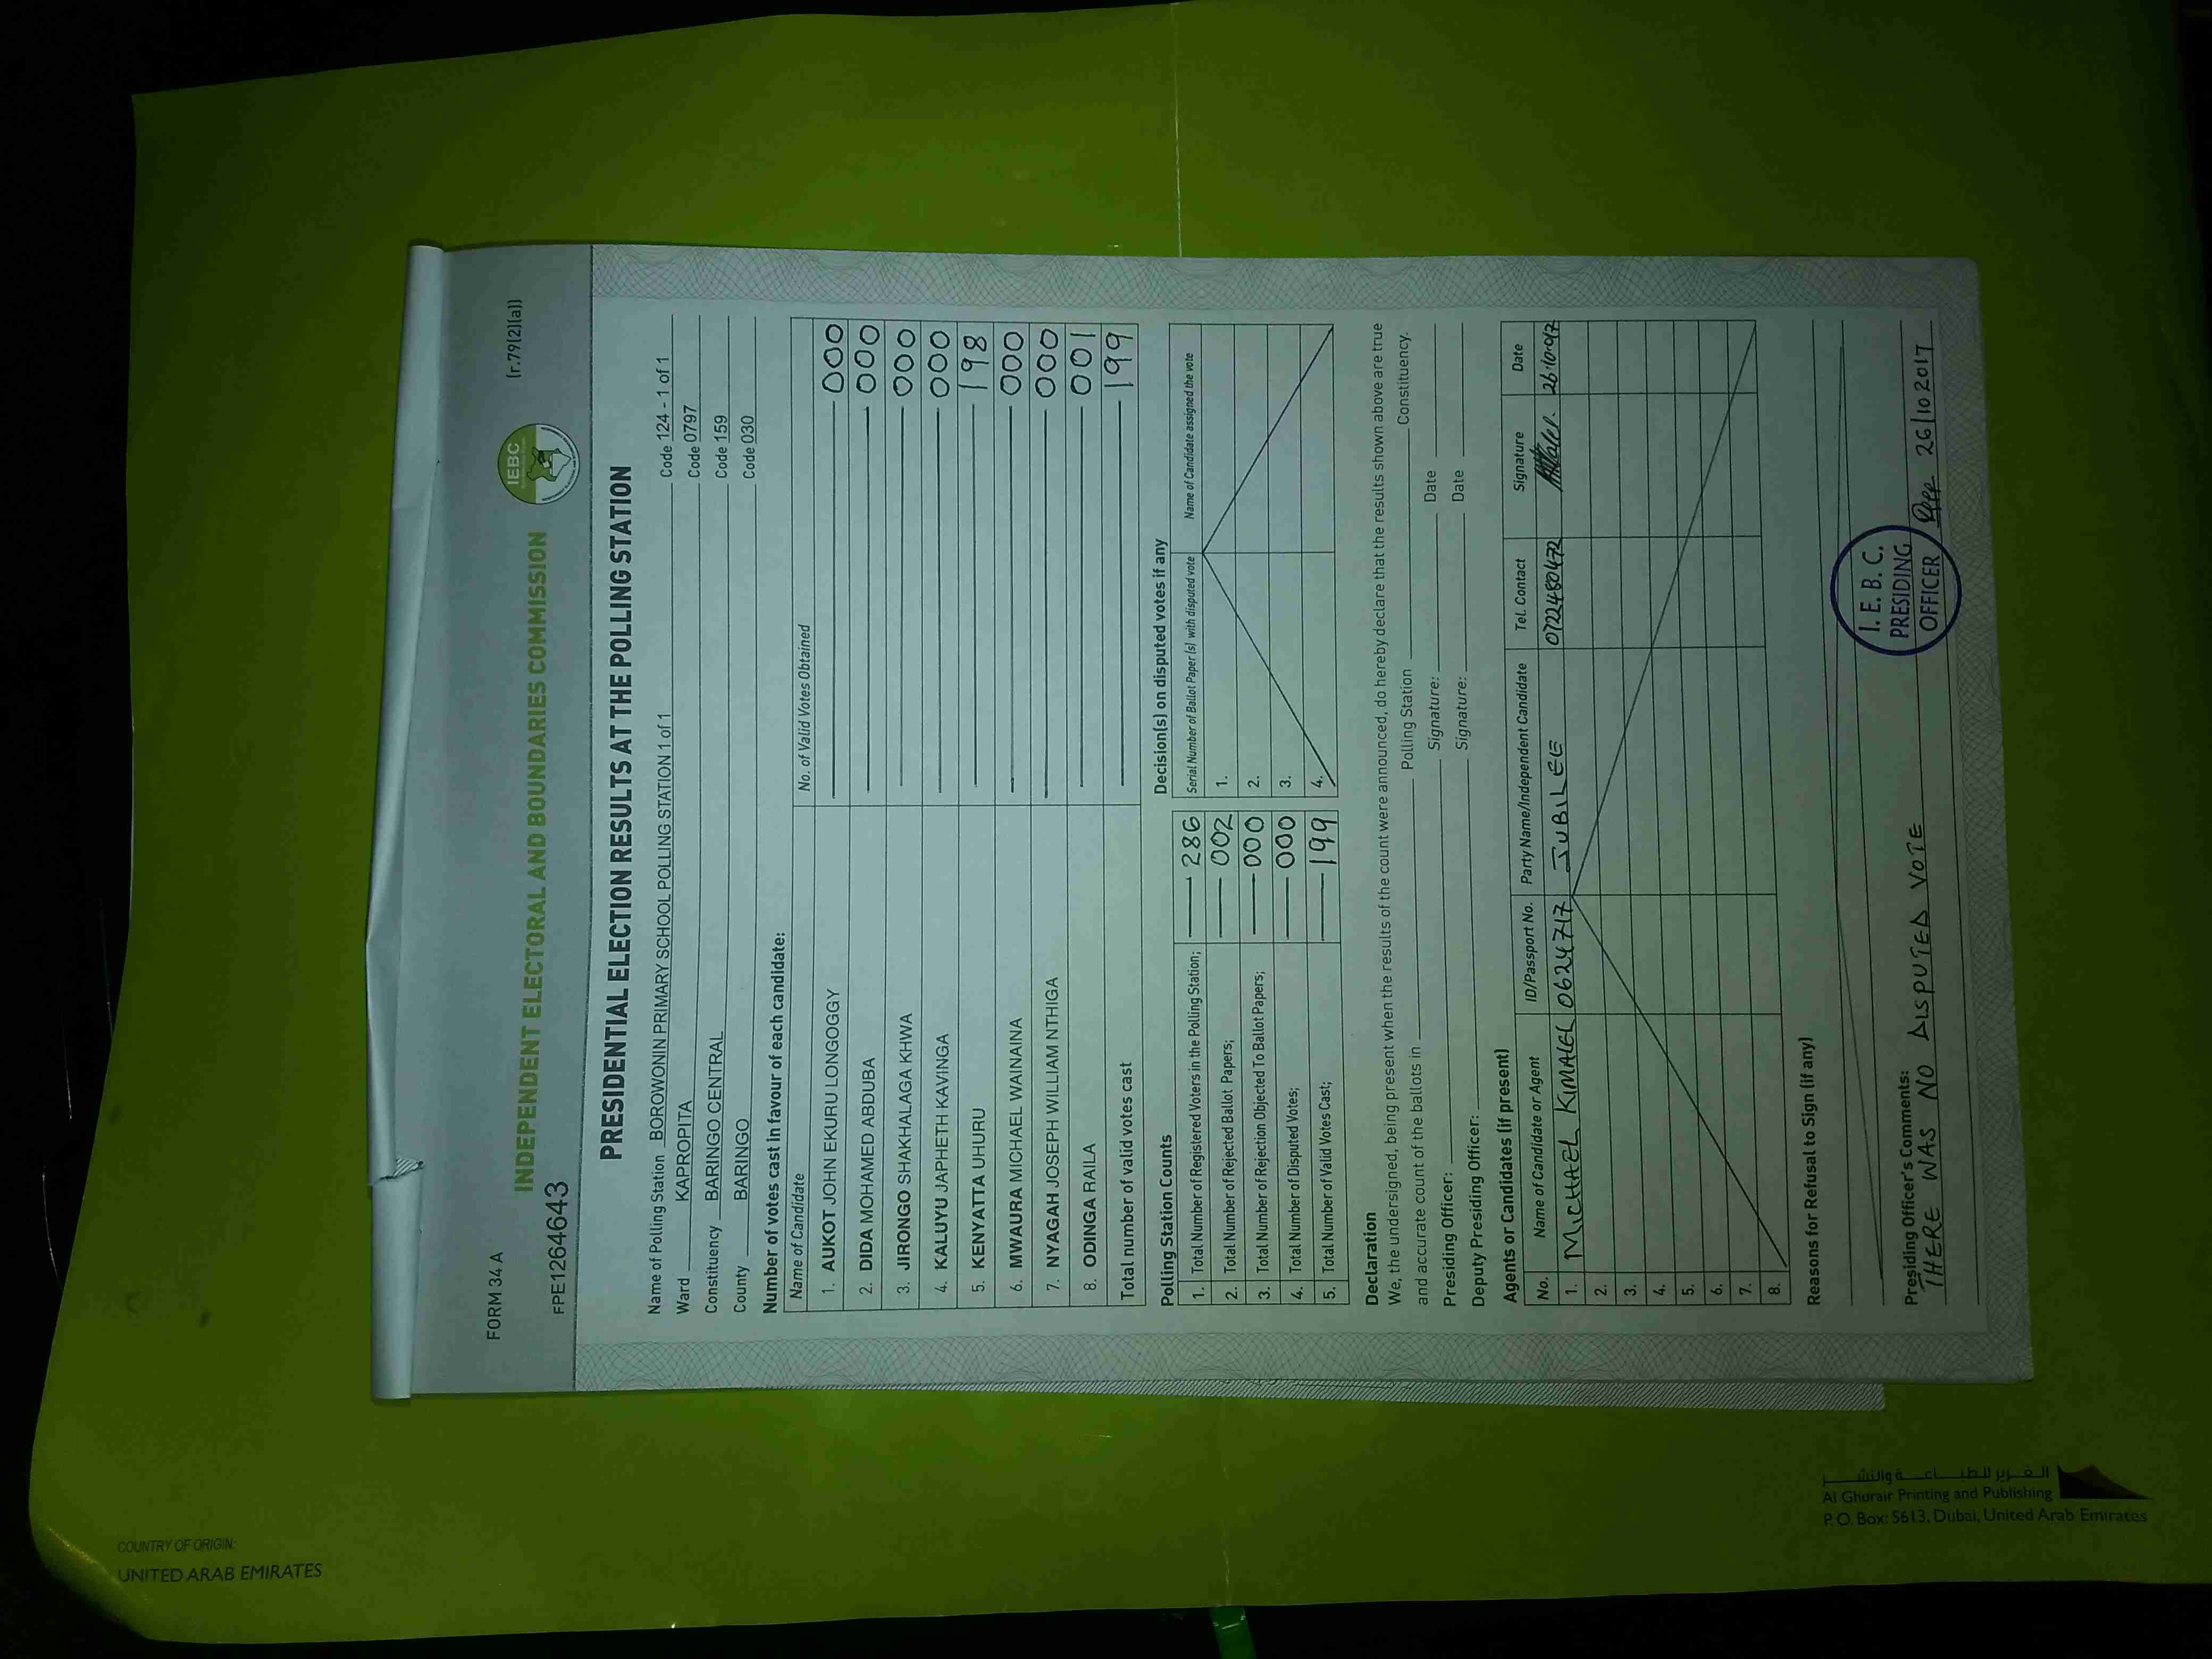 FORM 34 A
(r.79(2)(a))
INDEPENDENT ELECTORAL AND BOUNDARIES COMMISSION
IEBC
FPE1264643
PRESIDENTIAL ELECTION RESULTS AT THE POLLING STATION
Name of Polling Station BOROWONIN PRIMARY SCHOOL POLLING STATION 1 of 1 Code 124 - 1 of 1
Ward KAPROPITA Code 0797
Constituency BARINGO CENTRAL Code 159
County BARINGO Code 030
Number of votes cast in favour of each candidate:
Name of Candidate No. of Valid Votes Obtained
1. AUKOT JOHN EKURU LONGOGGY 000
2. DIDA MOHAMED ABDUBA 000
3. JIRONGO SHAKHALAGA KHWA 000
4. KALUYU JAPHETH KAVINGA 000
5. KENYATTA UHURU 198
6. MWAURA MICHAEL WAINAINA 000
7. NYAGAH JOSEPH WILLIAM NTHIGA 000
8. ODINGA RAILA 001
Total number of valid votes cast 199
Polling Station Counts
1. Total Number of Registered Voters in the Polling Station; 286
2. Total Number of Rejected Ballot Papers; 002
3. Total Number of Rejection Objected To Ballot Papers; 000
4. Total Number of Disputed Votes; 000
5. Total Number of Valid Votes Cast; 199
Decision(s) on disputed votes if any
Serial Number of Ballot Paper(s) with disputed vote Name of Candidate assigned the vote
1.
2.
3.
4.
Declaration
We, the undersigned, being present when the results of the count were announced, do hereby declare that the results shown above are true
and accurate count of the ballots in Polling Station Constituency.
Presiding Officer: Signature: Date
Deputy Presiding Officer: Signature: Date
Agents or Candidates (if present)
No. Name of Candidate or Agent ID/Passport No. Party Name/Independent Candidate Tel. Contact Signature Date
1. MICHAEL KIMALEL 0624717 JUBILEE 0722480472
2.
3.
4.
5.
6.
7.
8.
Reasons for Refusal to Sign (if any)
Presiding Officer's Comments:
THERE WAS NO DISPUTED VOTE 26/10 2017
I. E. B. C.
PRESIDING
OFFICER
COUNTRY OF ORIGIN:
UNITED ARAB EMIRATES
الغرير للطباعة والنشر
Al Ghurair Printing and Publishing
P.O. Box: 5613, Dubai, United Arab Emirates